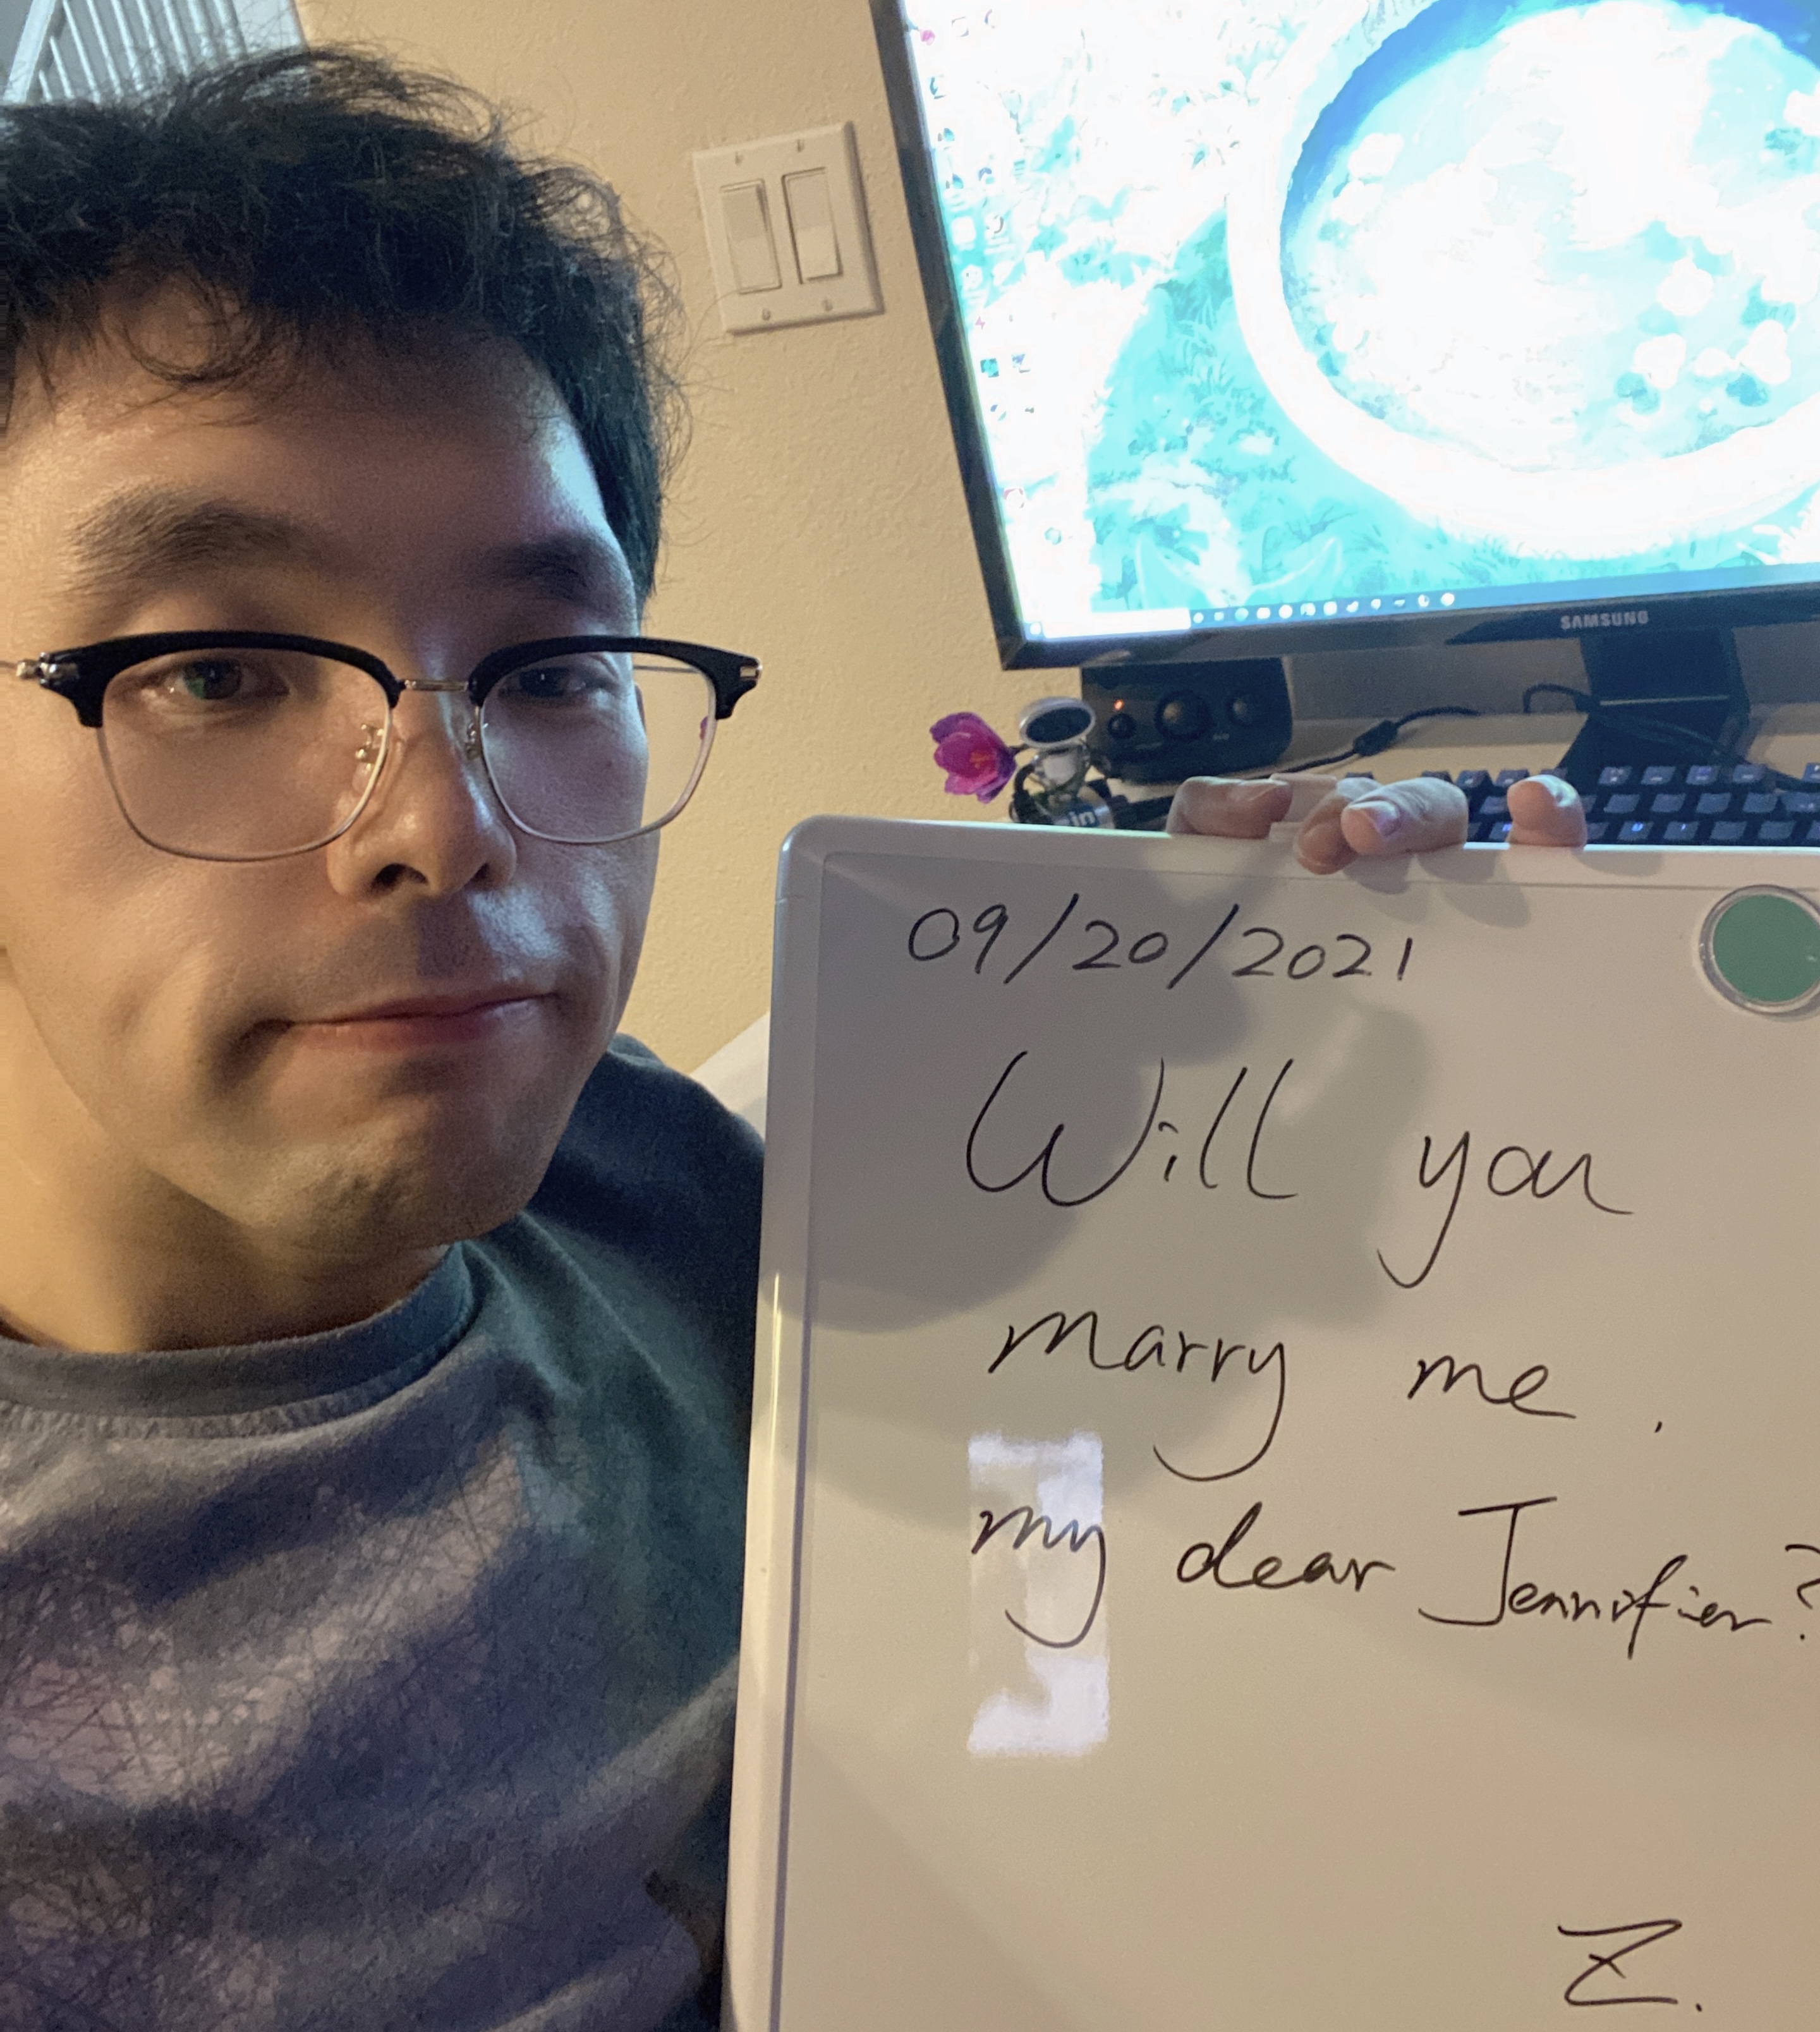 SAMSUNG
09/20/2021
Will you
marry me.
my dear Jennifier?
Z.